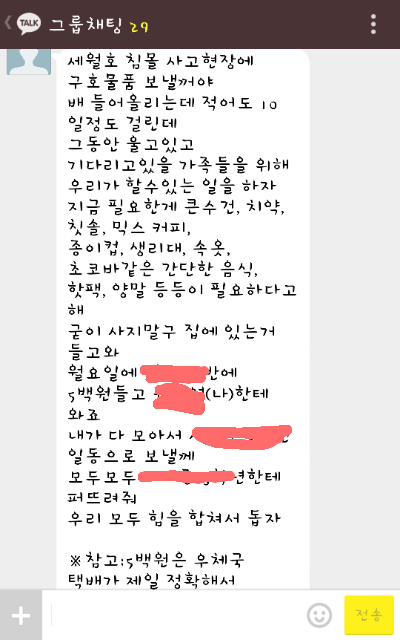 TALK 그룹채팅 29
세월호 침몰 사고현장에
구호물품 보낼꺼야
배 들어올리는데 적어도 10
일정도 걸린데
그동안 울고있고
기다리고있을 가족들을 위해
우리가 할수있는 일을 하자
지금 필요한게 큰수건, 치약,
칫솔, 믹스 커피,
종이컵, 생리대, 속옷,
초코바같은 간단한 음식,
핫팩, 양말 등등이 필요하다고
해
굳이 사지말구 집에 있는거
들고와
월요일에 반에
5백원들고 (나)한테
와죠
내가 다 모아서
일동으로 보낼께
모두모두 년한테
퍼뜨려줘
우리 모두 힘을 합쳐서 돕자
※참고:5백원은 우체국
택배가 제일 정확해서
전송